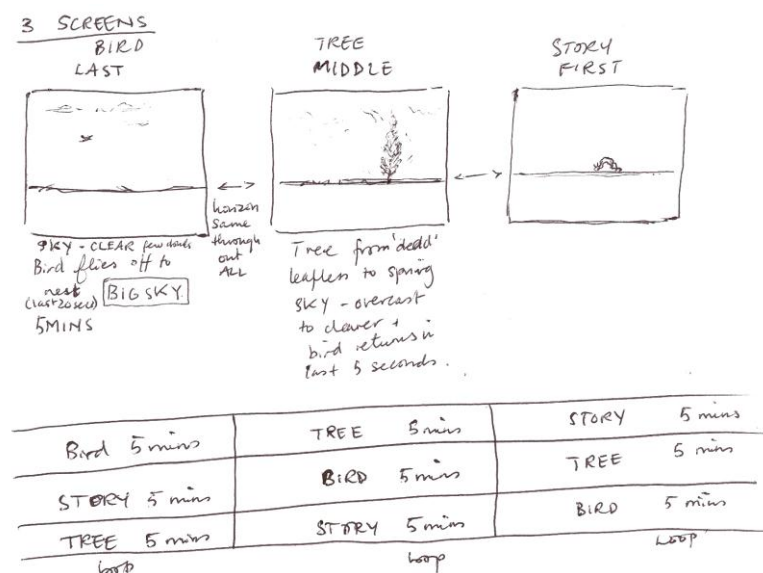 3 SCREENS
BIRD
LAST
TREE
MIDDLE
STORY
FIRST
horizon
same
through
out
ALL
SKY - CLEAR few clouds
Bird flies off to
nest
(last 20 secs) BIG SKY
5 MINS
Tree from 'dead'
leafless to spring
SKY - overcast
to clearer +
bird returns in
last 5 seconds.
Bird 5 mins TREE 5 mins STORY 5 mins
STORY 5 mins BIRD 5 mins TREE 5 mins
TREE 5 mins STORY 5 mins BIRD 5 mins
Loop Loop LOOP